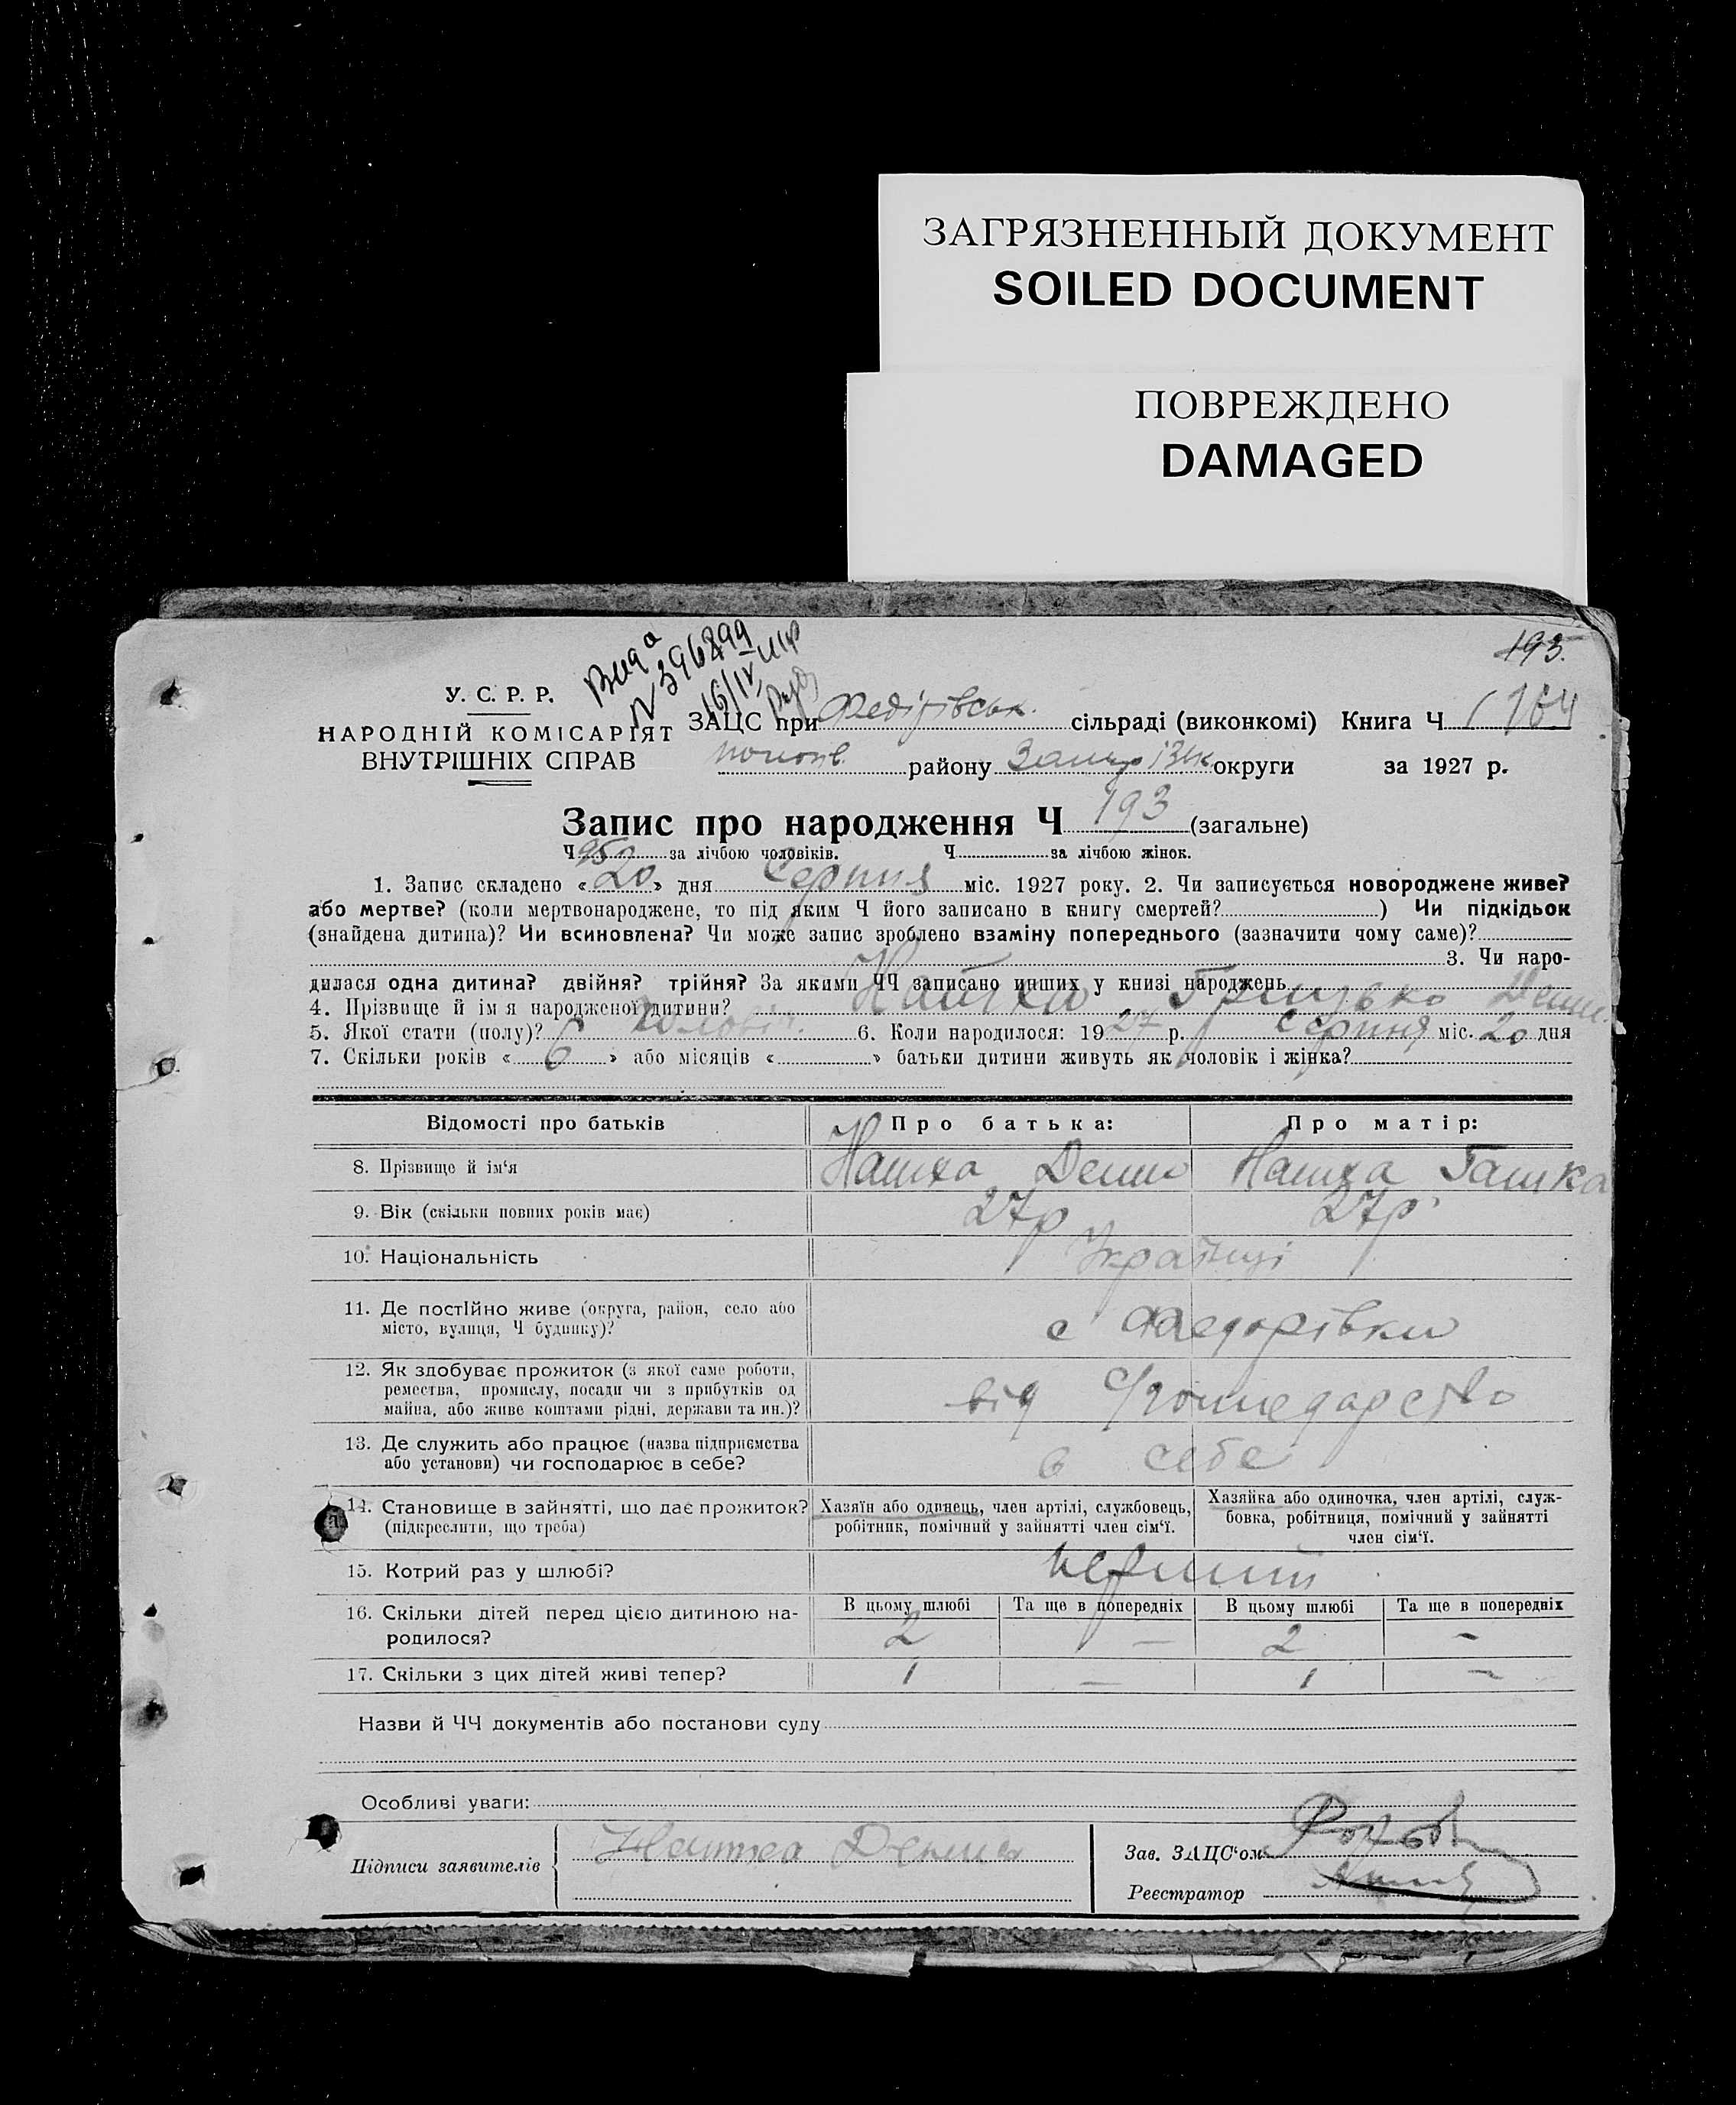 ЗАГРЯЗНЕННЫЙ ДОКУМЕНТ
SOILED DOCUMENT
ПОВРЕЖДЕНО
DAMAGED
195.
У. С. Р. Р.
НАРОДНІЙ КОМІСАРІЯТ
ВНУТРІШНІХ СПРАВ
ЗАЦС при Федірівськ. сільраді (виконкомі) Книга Ч
району округи за 1927 р.
Запис про народження Ч 193 (загальне)
Ч 95 за лічбою чоловіків. Ч за лічбою жінок.
1. Запис складено «20» дня Серпня міс. 1927 року. 2. Чи записується новороджене живе?
або мертве? (коли мертвонароджене, то під яким Ч його записано в книгу смертей?) Чи підкідьок
(знайдена дитина)? Чи всиновлена? Чи може запис зроблено взаміну попереднього (зазначити чому саме)?
3. Чи наро-
дилася одна дитина? двійня? трійня? За якими ЧЧ записано инших у книзі народжень
4. Прізвище й ім я народженої дитини? Грицько
5. Якої стати (полу)? чоловіч. 6. Коли народилося: 1927 р. серпня міс. 20 дня
7. Скільки років «6» або місяців « » батьки дитини живуть як чоловік і жінка?
Відомості про батьків Про батька: Про матір:
8. Прізвище й ім‘я
9. Вік (скільки повних років має) 27р 27р
10. Національність Українці
11. Де постійно живе (округа, район, село або
місто, вулиця, Ч будинку)? с Федорівки
12. Як здобуває прожиток (з якої саме роботи,
ремества, промислу, посади чи з прибутків од
майна, або живе коштами рідні, держави та ин.)? від
13. Де служить або працює (назва підприємства
або установи) чи господарює в себе? в себе
14. Становище в зайнятті, що дає прожиток?
(підкреслити, що треба)
Хазяїн або одинець, член артілі, службовець,
робітник, помічний у зайнятті член сім‘ї.
Хазяйка або одиночка, член артілі, служ-
бовка, робітниця, помічний у зайнятті
член сім‘ї.
15. Котрий раз у шлюбі? перший
В цьому шлюбі Та ще в попередніх В цьому шлюбі Та ще в попередніх
16. Скільки дітей перед цією дитиною на-
родилося? 2 — 2 —
17. Скільки з цих дітей живі тепер? 1 — 1 —
Назви й ЧЧ документів або постанови суду
Особливі уваги:
Підписи заявителів
Зав. ЗАЦС‘ом
Реєстратор